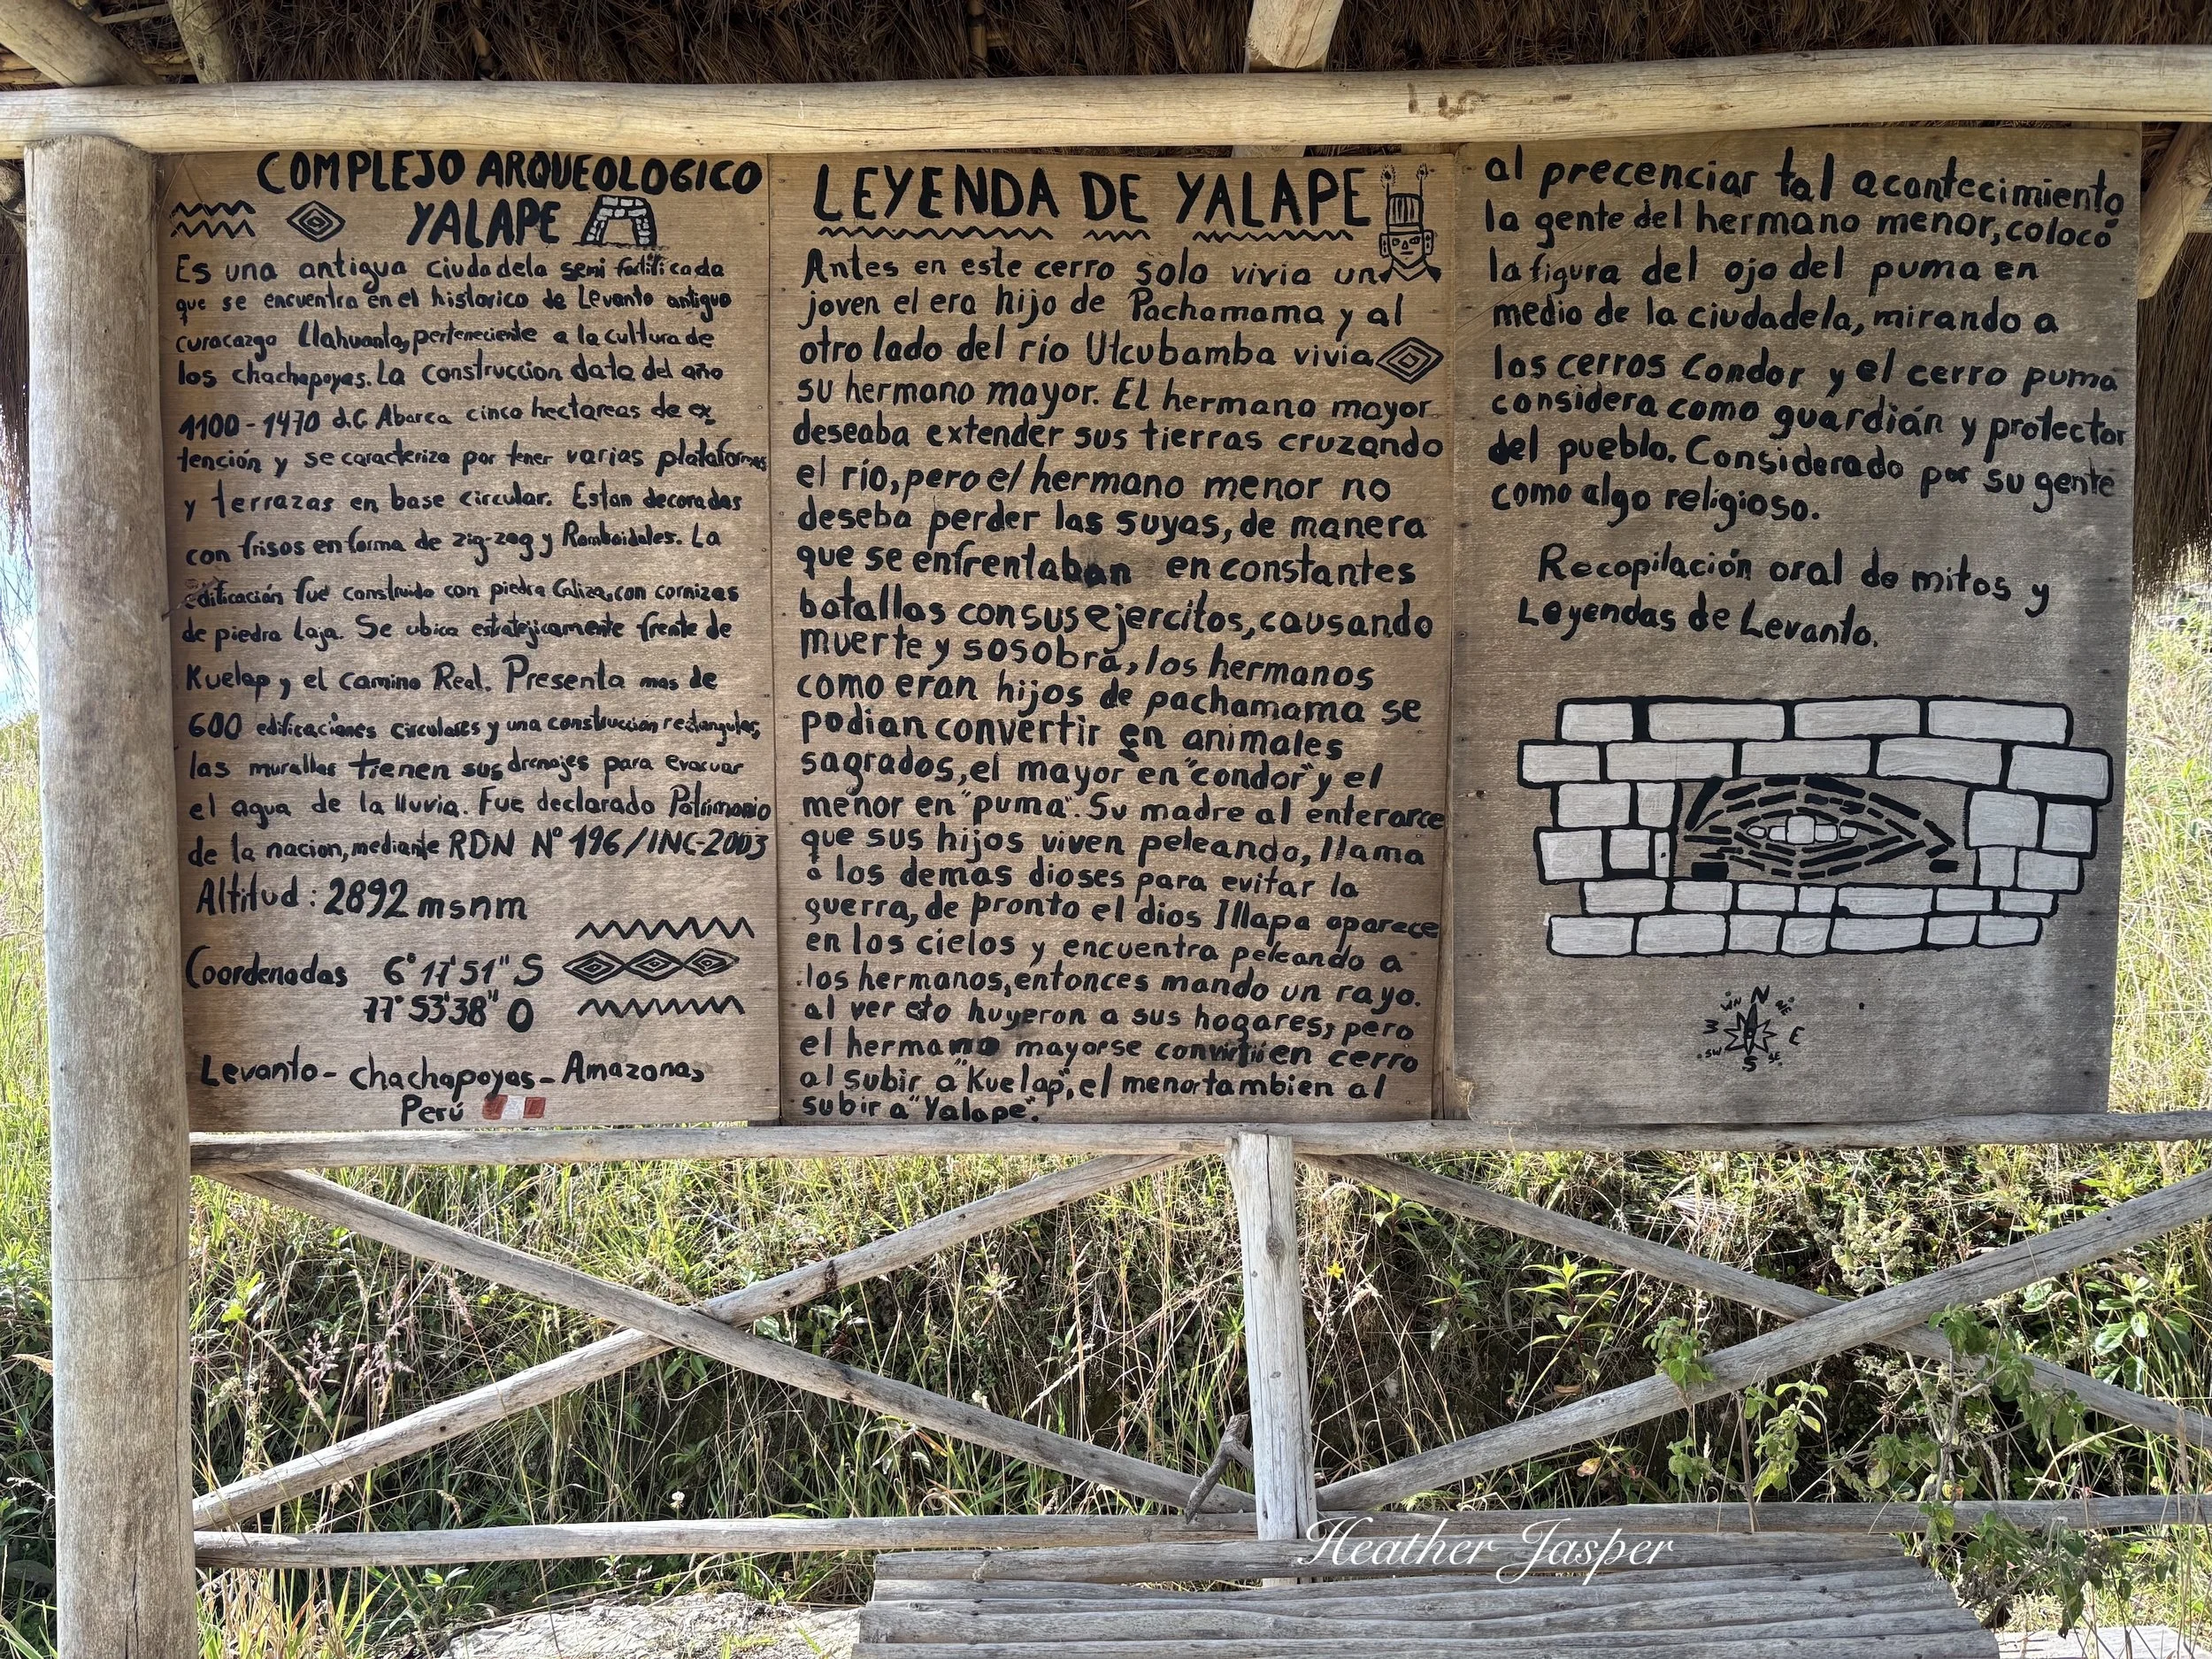 COMPLEJO ARQUEOLOGICO
YALAPE
Es una antigua ciudadela semi fortificada
que se encuentra en el historico de Levanto antiguo
curacazgo Llahuanto, perteneciente a la cultura de
los chachapoyas. La construccion data del año
1100-1470 d.C Abarca cinco hectareas de ex
tención y se caracteriza por tener varias plataformas
y terrazas en base circular. Estan decoradas
con frisos en forma de zig-zag y Romboidales. La
edificación fue construida con piedra Caliza, con cornizas
de piedra laja. Se ubica estratejicamente frente de
Kuelap y el camino Real. Presenta mas de
600 edificaciones circulares y una construccion rectangular,
las murallas tienen sus drenajes para evacuar
el agua de la lluvia. Fue declarado Patrimonio
de la nacion, mediante RDN N° 196/INC-2003
Altitud: 2892 msnm
Coordenadas 6°17'51" S
77°53'38" O
Levanto - chachapoyas - Amazonas
Perú
LEYENDA DE YALAPE
Antes en este cerro solo vivia un
joven el era hijo de Pachamama y al
otro lado del río Utcubamba vivia
su hermano mayor. El hermano mayor
deseaba extender sus tierras cruzando
el río, pero el hermano menor no
deseba perder las suyas, de manera
que se enfrentaban en constantes
batallas con sus ejercitos, causando
muerte y sosobra, los hermanos
como eran hijos de pachamama se
podian convertir en animales
sagrados, el mayor en "condor" y el
menor en "puma". Su madre al enterarce
que sus hijos viven peleando, llama
a los demas dioses para evitar la
guerra, de pronto el dios Illapa aparece
en los cielos y encuentra peleando a
los hermanos, entonces mando un rayo.
al ver eto huyeron a sus hogares, pero
el hermano mayor se convirtií en cerro
al subir a "Kuelap", el menor tambien al
subir a "Yalape".
al precenciar tal acontecimiento
la gente del hermano menor, colocó
la figura del ojo del puma en
medio de la ciudadela, mirando a
los cerros Condor y el cerro puma
considera como guardián y protector
del pueblo. Considerado por su gente
como algo religioso.
Recopilación oral de mitos y
Leyendas de Levanto.
N
NE
E
SE
S
SW
Heather Jasper